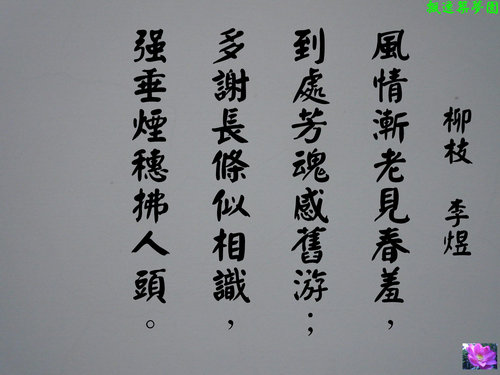 柳枝 李煜
風情漸老見春羞，
到處芳魂感舊游；
多謝長條似相識，
强垂煙穗拂人頭。